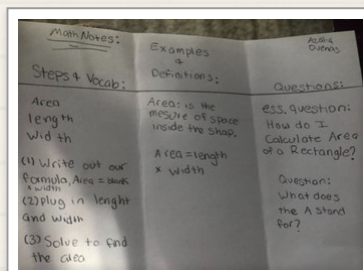 Math Notes:
Steps & Vocab:
Area
length
Width
(1) Write out our
formula, Area =
x width
(2) plug in lenght
and width
(3) Solve to find
the area
Examples
&
Definitions:
Area: is the
mesure of space
inside the shap.
Area = length
x width
Duenas
Questions:
ess. question:
How do I
Calculate Area
of a Rectangle?
Question:
What does
the A stand
for?